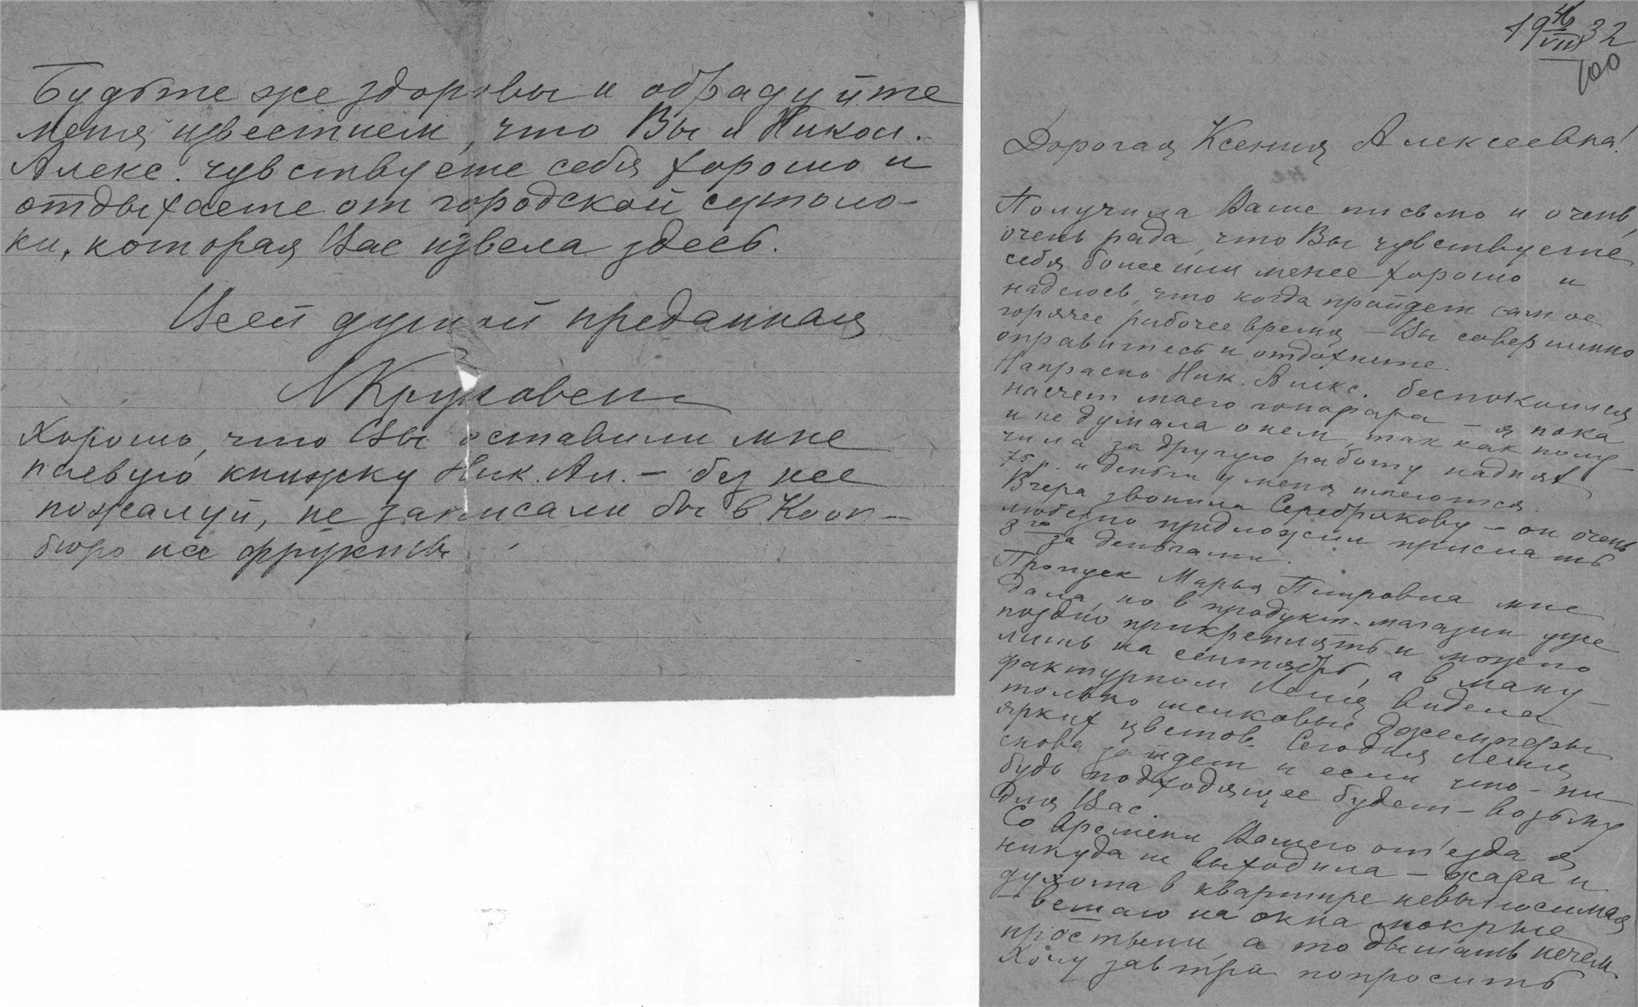 Будьте же здоровы и обрадуйте
меня известием, что Вы и Никол.
Алекс. чувствуете себя хорошо и
отдыхаете от городской сутоло-
ки, которая Вас извела здесь.
Всей душой преданная
Хорошо, что Вы оставили мне
паевую книжку Ник. Ал. – без нее
пожалуй, не записали бы в Кооп-
бюро на фрукты
19 VIII 32
100
Дорогая Ксения Алексеевна!
Получила Ваше письмо и очень,
очень рада, что Вы чувствуете
себя более или менее хорошо и
надеюсь, что когда пройдет самое
горячее рабочее время – Вы совершенно
оправитесь и отдохнете.
Напрасно Ник. Алекс. беспокоился
насчет моего гонорара – я пока
и не думала о нем, так как полу-
чила за другую работу
75 р. и деньги у меня имеются.
Вчера звонила Серебрякову – он очень
любезно предложил прислать
3го за деньгами.
Пропуск Марья Петровна мне
дала, но в продукт. магазин уже
поздно прикреплять и можно
лишь на сентябрь, а в ману-
фактурном Леля видела
только шелковые джемперы
ярких цветов. Сегодня Леля
снова зайдет и если что-ни
будь подходящее будет – возьму
для Вас.
Со времени Вашего от'езда я
никуда не выходила – жара и
духота в квартире невыносимая
– вешаю на окна мокрые
простыни, а то дышать нечем.
Хочу завтра попросить